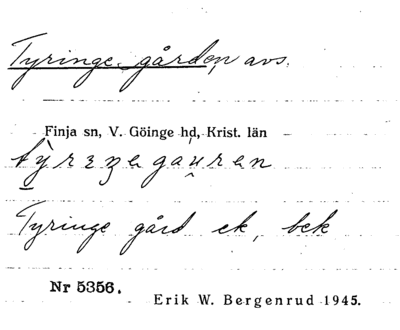 Tyringe gården avs.
Finja sn, V. Göinge hd, Krist. län
Tyringe gård ek, bek
Nr 5356.
Erik W. Bergenrud 1945.